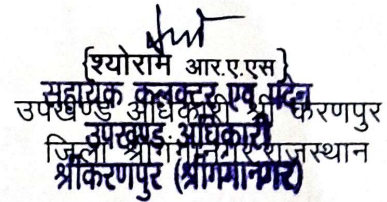 {श्योराम आर.ए.एस}
सहायक कलक्टर एवं पदेन
उपखण्ड अधिकारी श्री करणपुर
उपखण्ड अधिकारी
जिला श्रीगंगानगर राजस्थान
श्रीकरणपुर (श्रीगंगानगर)